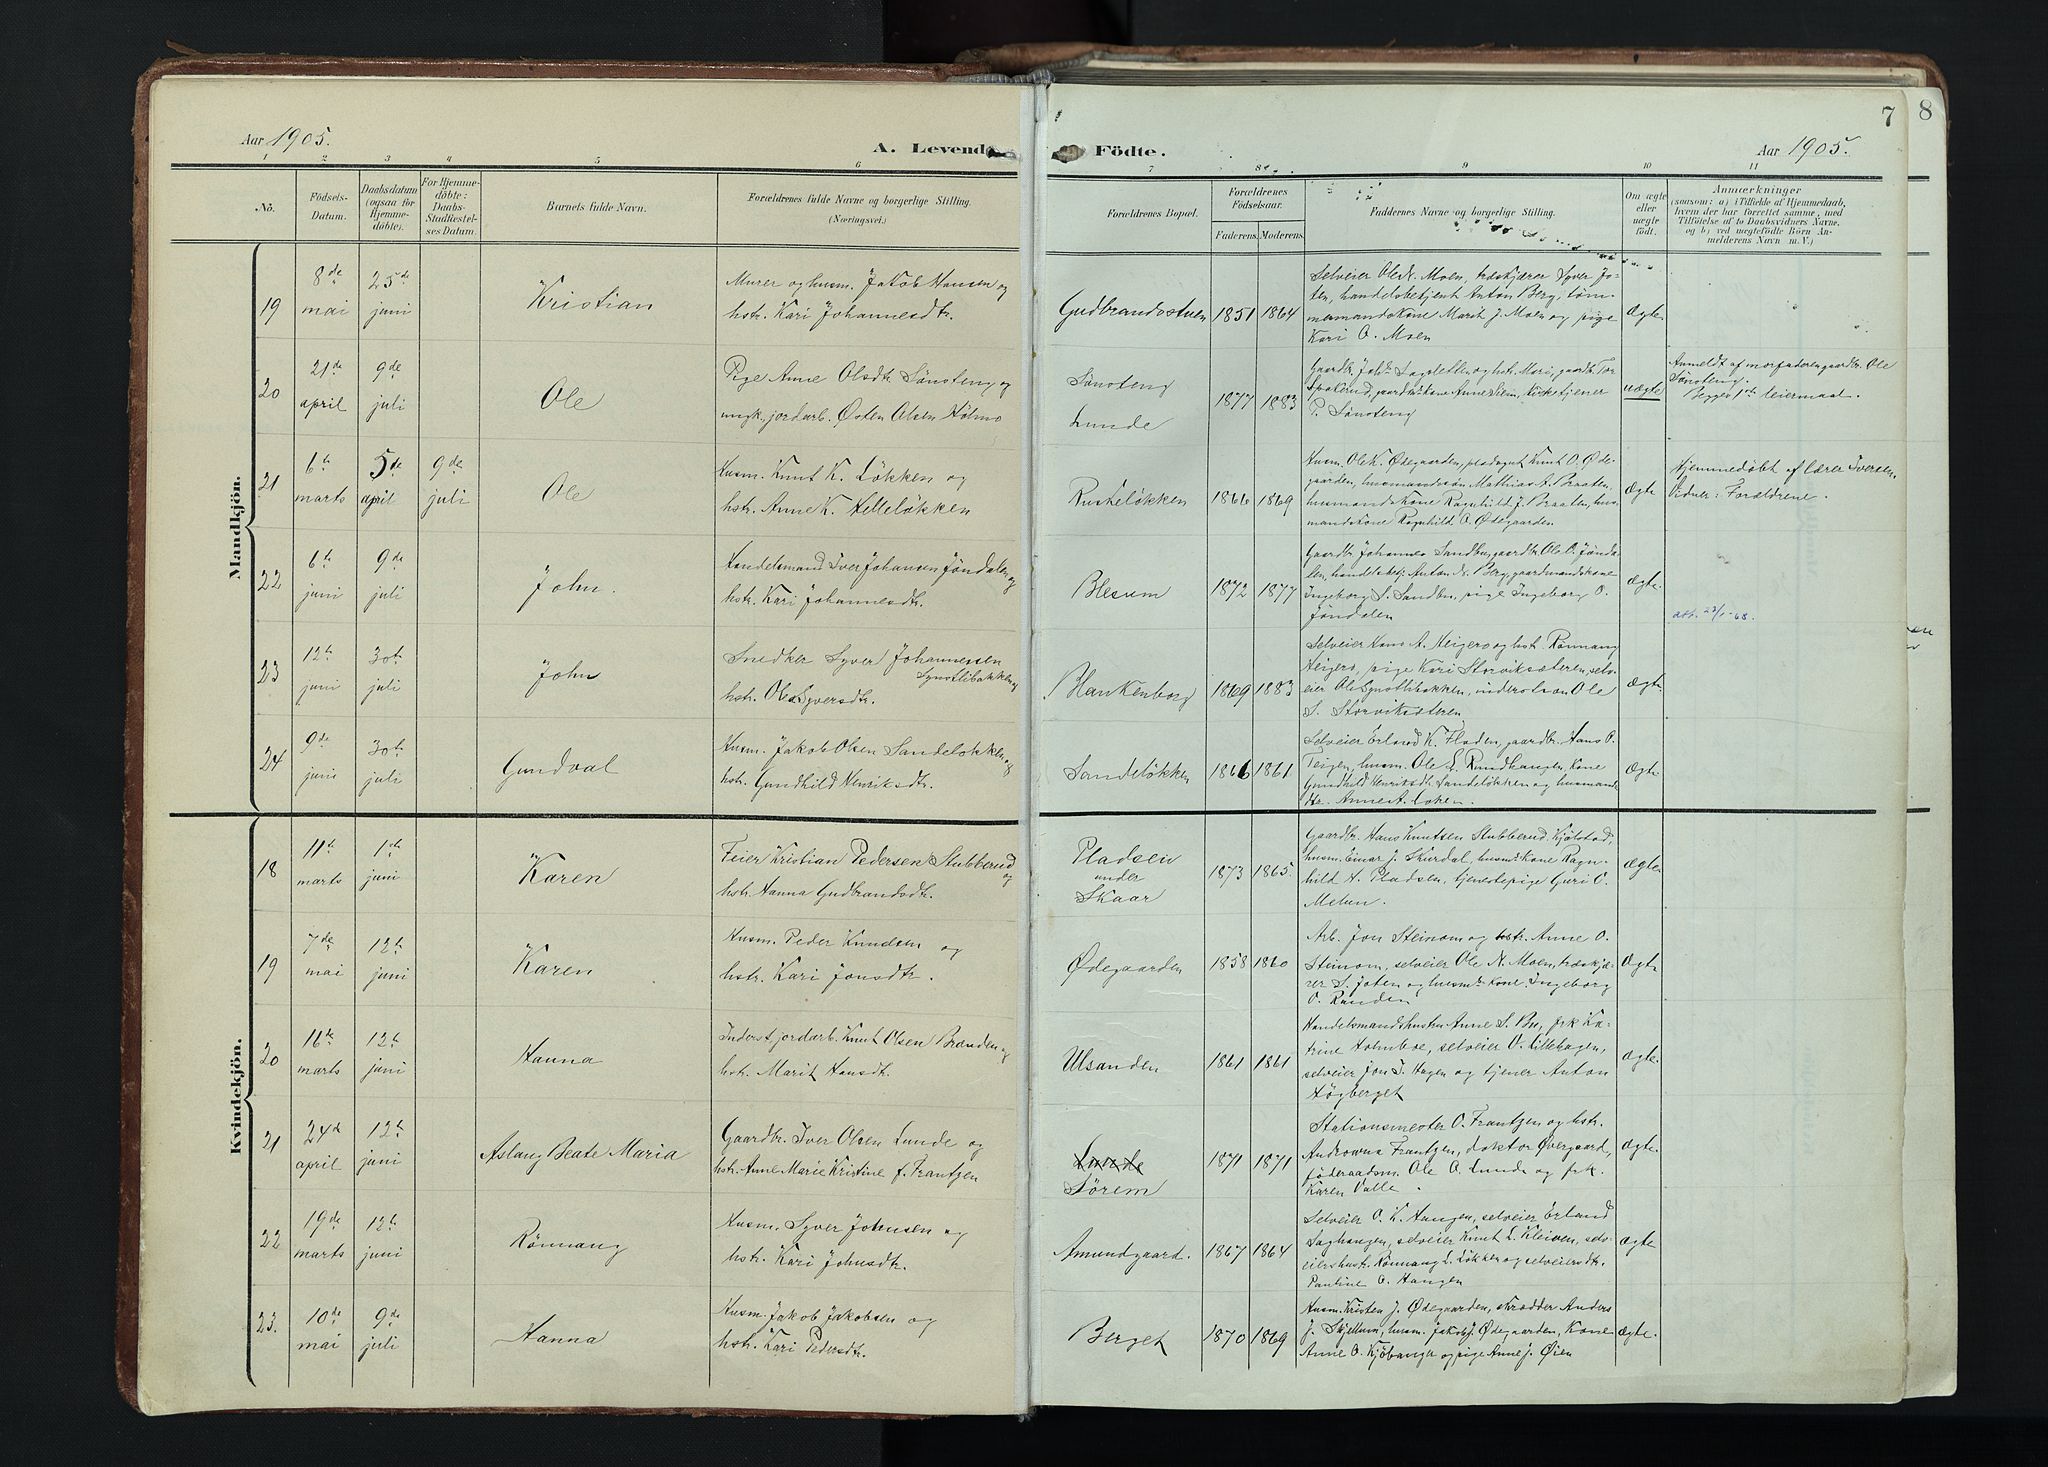 Aar 1905.
A. Levende
Födte.
Aar 1905.
7
8
1 2 3 4 5 6 7 8 9 10 11
No.
Födsels-Datum.
Daabsdatum (ogsaa for Hjemmedöbte).
For Hjemmedöbte: Daabs-Stadfæstelses Datum.
Barnets fulde Navn.
Forældrenes fulde Navne og borgerlige Stilling. (Næringsvei.)
Forældrenes Bopæl.
Forældrenes Födselsaar.
Faderens. Moderens.
Faddernes Navne og borgerlige Stilling.
Om ægte eller uægte födt.
Anmærkninger
(saasom: a) i Tilfælde af Hjemmedaab, hvem der har forrettet samme, med Tilföielse af to Daabsvidners Navne, og b) ved uægtefödte Börn Anmelderens Navn m. V.)
Mandkjön.
19 8de mai 25de juni Kristian
Murer og husm. Jakob Hansen og
hstr. Kari Johannesdtr.
Gudbrandsstuen 1851 1864
Selveier Ole N. Moen, træskjærer Syver Jo-
ten, handelsbetjent Anton Berg, töm-
mermandskone Marit J. Moen og pige
Kari O. Moen
Ægte
20 21de april 9de juli Ole
Pige Anne Olsdtr. Sönsteng og
ungk., jordarb. Østen Olsen Holmo
Sönsteng
Lunde
1877 1883
P. Sönsteng
uægte
Anmeldt af morfaderen gaardbr. Ole
Sönsteng.
Begges 1ste leiermaal.
21 6te marts 5de april 9de juli Ole
Husm. Knut K. Lökken og
hstr. Anne K. Helleløkken
Ruskeløkken 1866 1869
Husm. Ole K. Ødegaarden, pladsgut Knut O. Øde-
gaarden, husmandssön Mathias A. Braaten,
husmandskone Ragnhild J. Braaten, hus-
mandskone Ragnhild O. Ødegaarden
Ægte
Hjemmedöbt af lærer Iversen.
Vidner: Forældrene.
22 6te juni 9de juli John.
Handelsmand Iver Johansen Jöndalen og
hstr. Kari Johannesdtr.
Blesum 1872 1877
Gaardbr. Johannes Sandbu, gaardbr. Ole O. Jönda-
len, handelsbetj. Anton N. Berg, gaardmandskone
Ingeborg S. Sandbu, pige Ingeborg O.
Jöndalen
Ægte
23 12te juni 30te juli John
Snedker Syver Johannessen
Synstlibakken og
hstr. Olea Syversdtr.
Blankenborg 1869 1883
Selveier Hans A. Heigero og hstr. Rönnaug
Heigero, pige Kari Storviksæteren, selv-
eier Ole Synstlibakken, underoltnan Ole
S. Storviksæteren
Ægte
24 9de juni 30te juli Gundval
Husm. Jakob Olsen Sandeløkken og
hstr. Gundhild Henriksdtr.
Sandeløkken 1866 1861
Selveier Erland K. Fladen, gaardbr. Hans O.
Teigen, husm. Ole L. Rundhaugen, kone
Gundhild Henriksdtr. Sandeløkken og husmand
Ægte
Kvindekjön.
18 11te marts 1ste juni Karen
Feier Kristian Pedersen Stubberud og
hstr. Hanna Gudbrandsdtr.
Pladsen
under
Skaar
1873 1865.
Gaardbr. Hans Knutsen Stubberud Kjölstad,
husm. Einar J. Skurdal, husm. kone Ragn-
hild A. Pladsen, tjenestepige Guri O.
Melum.
Ægte
19 7de mai 12te juni Karen
Husm. Peder Knudsen og
hstr. Kari Jonsdtr.
Ødegaarden 1858 1860
Arb. Jon Steinom og hstr. Anne O.
Steinom, selveier Ole N. Moen, træskjæ-
rer S. Joten og husm. kone Ingeborg
O. Randen
Ægte
20 16de marts 12te juni Hanna
Inderst, jordarb. Knut Olsen Brænden og
hstr. Marit Hansdtr.
Ulsanden 1861 1861
Handelsmandshustru Anne S. Bu, frk Ka-
trine Holmboe, selveier O. Lillehagen,
selveier Jon T. Hagen og tjener Anton
Högberget
Ægte
21 24de april 12te juni Aslaug Beate Maria
Gaardbr. Iver Olsen Lunde og
hstr. Anne Marie Kristine f. Frantzen
Lunde
Sörem
1871 1871
Stationsmester O. Frantzen og hstr.
Androwna Frantzen, doktor Øvergaard,
föderaadsm. Ole O. Lunde og frk.
Karen Valle.
Ægte
22 19de marts 12te juni Rönnaug
Husm. Syver Johnsen og
hstr. Kari Johnsdtr.
Amundgaard. 1867 1864
Selveier O. K. Haugen, selveier Erland
Saghaugen, selveier Knut L. Kleiven, selv-
eierhustr. Rönnaug L. Løkken og selveiersdtr.
Pauline O. Haugen
Ægte
23. 10de mai 9de juli Hanna
Husm. Jakob Jakobsen og
hstr. Kari Pedersdtr.
Berget 1870 1869
Husm. Kristen J. Ødegaarden, skrædder Anders
J. Skjellum, husm. Jakob J. Ødegaarden, kone
Anne O. Kjöshaugen og pige Anne J. Øien
Ægte.